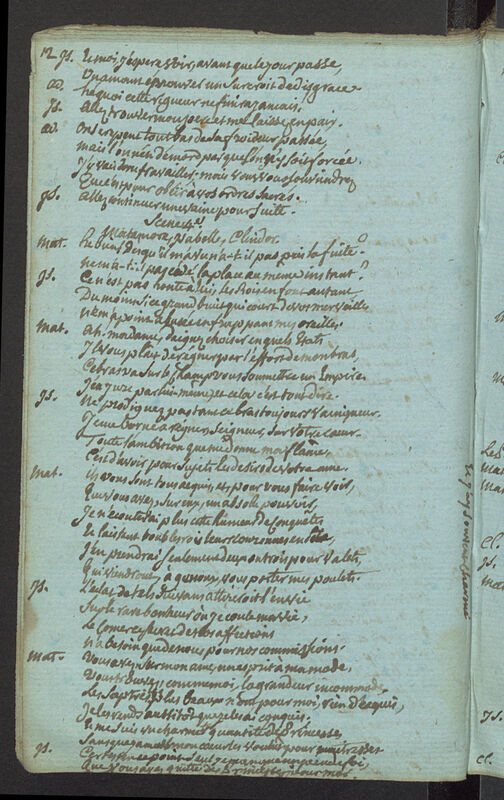 12 js. Et moi, j'espere voir, avant que le jour passe,
Un amant eprouver un surcroit de disgrace.
ad. he quoi cette rigueur ne finira jamais.
js. allez trouver mon pere, et me laissez en paix.
ad. 
mais l'on n'en démord pas que l'on n'y soit forcée.
J'y vais donc travailler, mais vous vous souviendrez
Que c'est pour obéir à vos ordres
js. allez continuer une vaine poursuite.
Scene 4e.
Matamore, Isabelle, Clindor.
mat. he bien dès qu'il m'a vu n'a-t-il pas pris la fuite?
ne m'a-t-il pas cédé la place au meme instant?
js. Ce n'est pas honte à lui, les Rois en font autant
Du moins si ce grand bruit qui court de vos merveilles
N'a point abusé mes oreilles.
mat. ah, madame, daignez choisir en quels Etats
Il vous plait de régner; par l'effort de mon bras,
Ce bras va sur le champ vous soumettre un Empire.
J'en jure par lui-même, et cela c'est tout dire.
js. Ne prodiguez pas tant ce bras toujours vainqueur.
Je me borne à régner, Seigneur, sur votre cœur.
Toute l'ambition que me donne ma flame,
C'est d'avoir pour sujets les desirs de votre ame.
mat. ils vous sont tous acquis, et, pour vous faire voir,
Que vous avez sur eux, un absolu pouvoir,
Je n'écouterai plus cette humeur de conquête,
Et laissant tous les rois leurs couronnes en tête,
J'en prendrai seulement deux ou trois pour valets,
Qui viendront, à genoux, vous porter mes poulets.
js. L'éclat de tels suivans attireroit l'envie
Sur le rare bonheur où je coule ma vie,
Le comerce de nos affections
n'a besoin que de nous pour nos commissions.
mat. vous avez, sur mon ame, un esprit à ma mode,
Vous trouvez, comme moi, la grandeur incommode.
Les sceptres les plus beaux n'ont pour moi rien d'exquis,
Je les rends aussitot que je les ai conquis.
Et me suis vu charmer quantité de Princesses,
Sans que jamais mon cœur les voulut pour maitresses
js. Certes en ce point seul je manque un peu de foi
Que vous ayez quitté des Princesses pour moi.